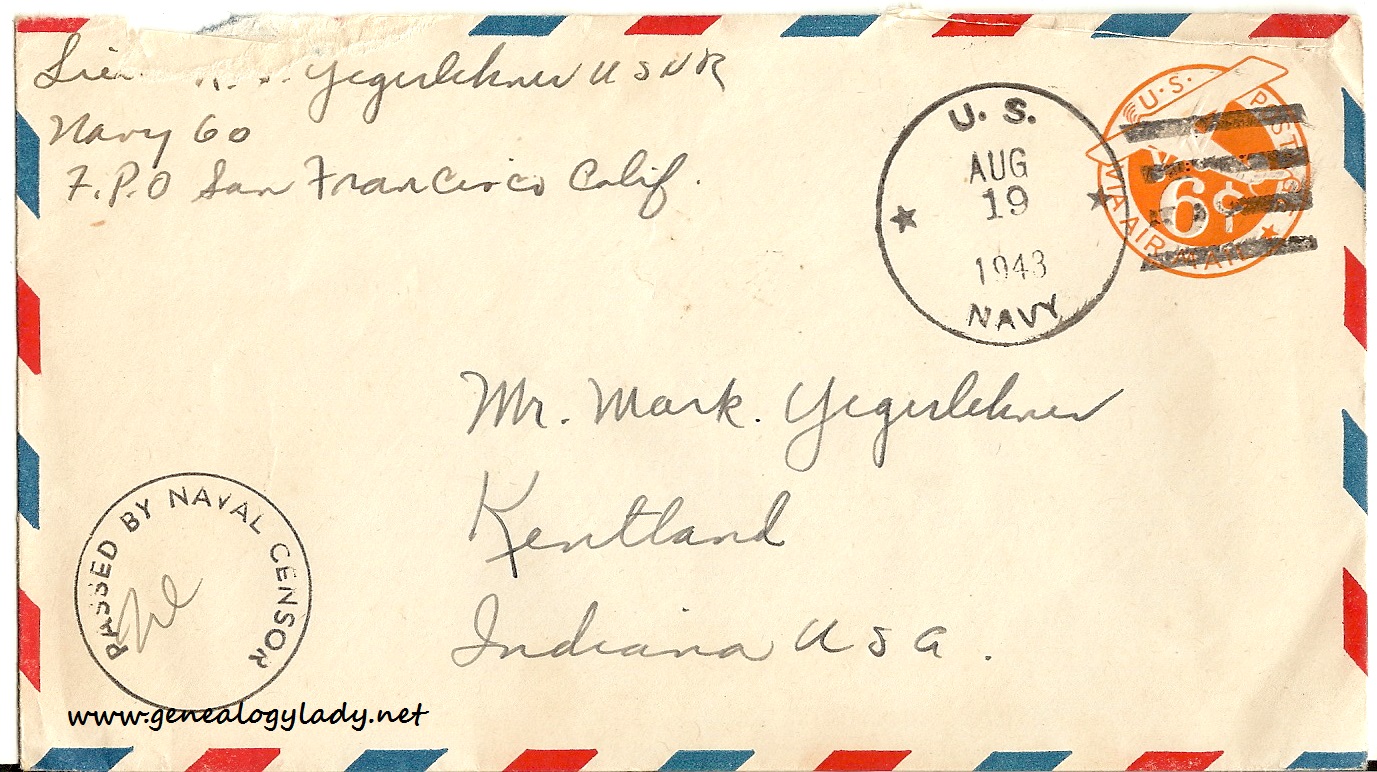 Yegerlehner USNR
Navy 60
F.P.O San Francisco Calif.
U. S.
AUG
19
1943
NAVY
U.S. POSTAGE
6¢
VIA AIR MAIL
Mr. Mark. Yegerlehner
Kentland
Indiana USA.
PASSED BY NAVAL CENSOR
www.genealogylady.net